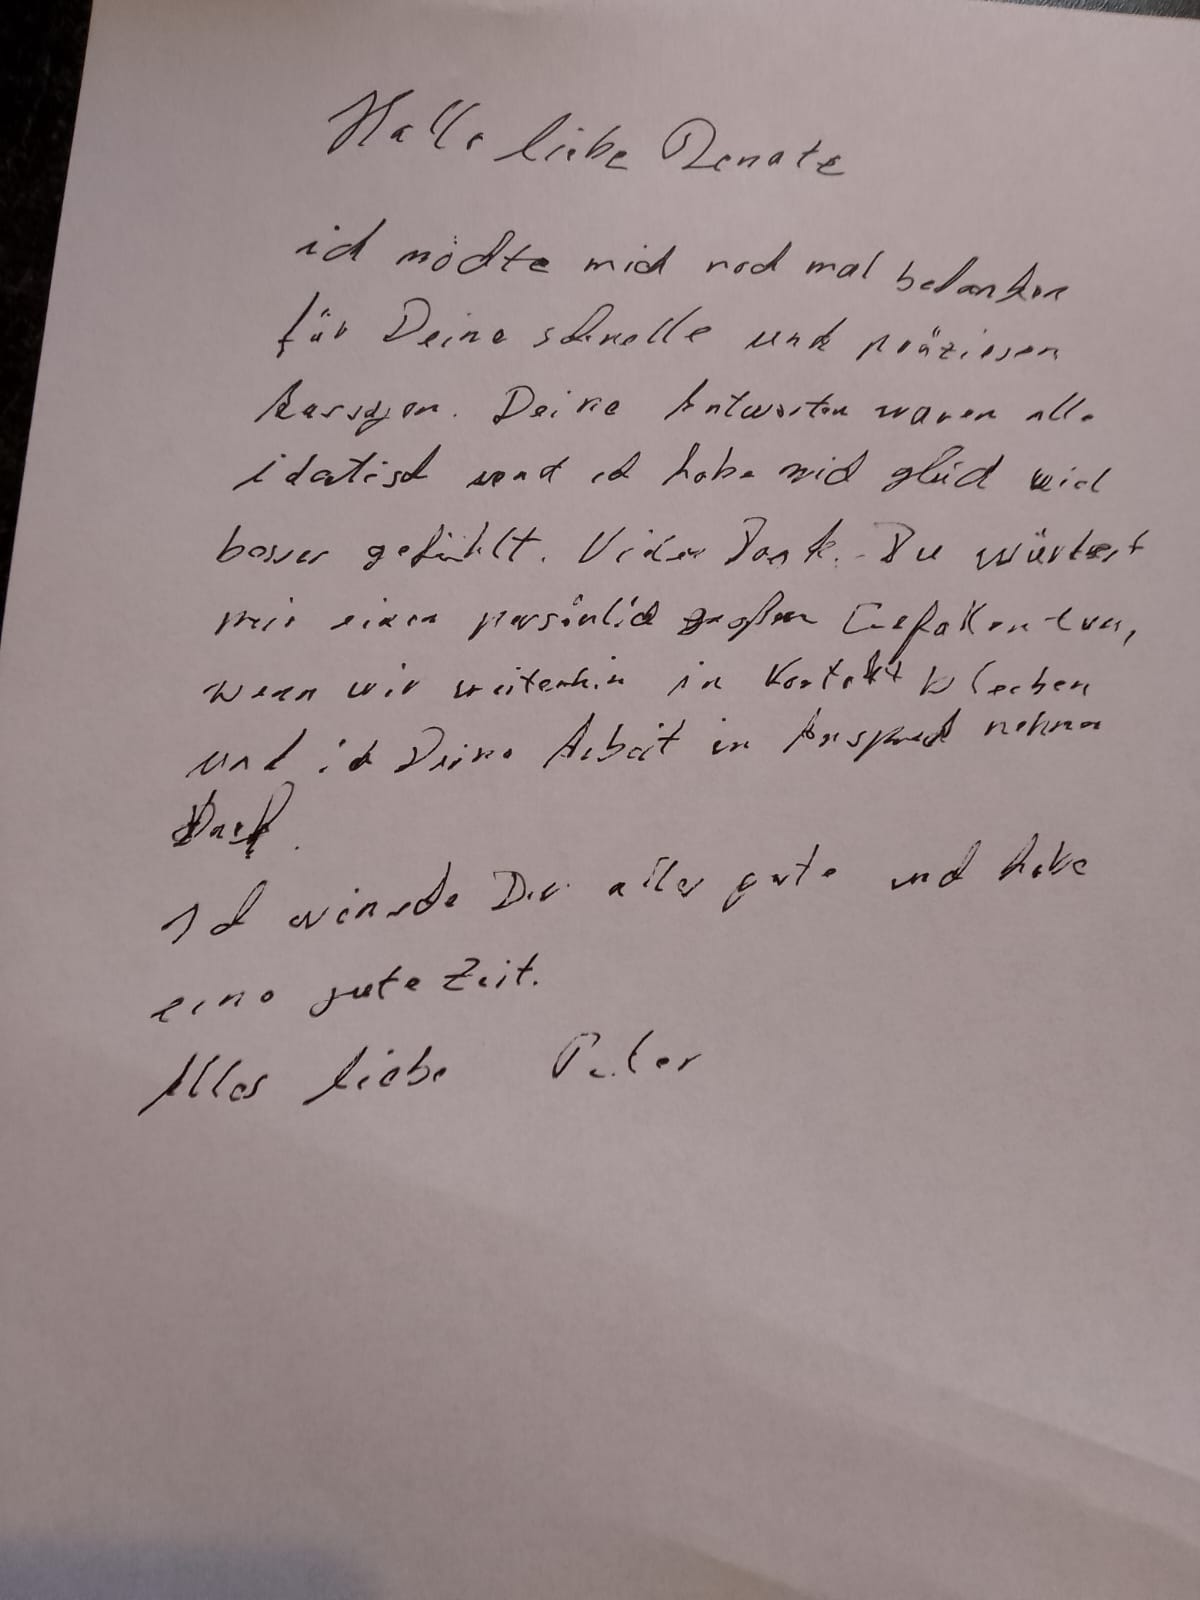 Hallo liebe Renate
ich möchte mich noch mal bedanken
für Deine schnelle und präziesen
Aussagen. Deine Antworten waren alle
identisch und ich habe mich gleich viel
besser gefühlt. Vielen Dank. Du würdest
mir einen persönlich großen Gefallen tun,
wenn wir weiterhin in Kontakt bleiben
und ich Deine Arbeit in Anspruch nehmen
Darf.
Ich wünsche Dir alles gute und habe
eine gute Zeit.
Alles liebe Peter